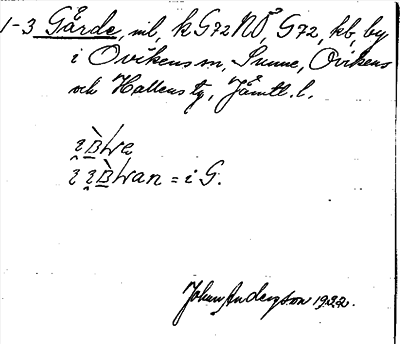 1-3 Gärde, mbl, kG72NO, G72, kb, by
i Ovikens sn, Sunne, Ovikens
och Hallens tg, Jämtl. l.
= i G.
Johan Anderson 1922.